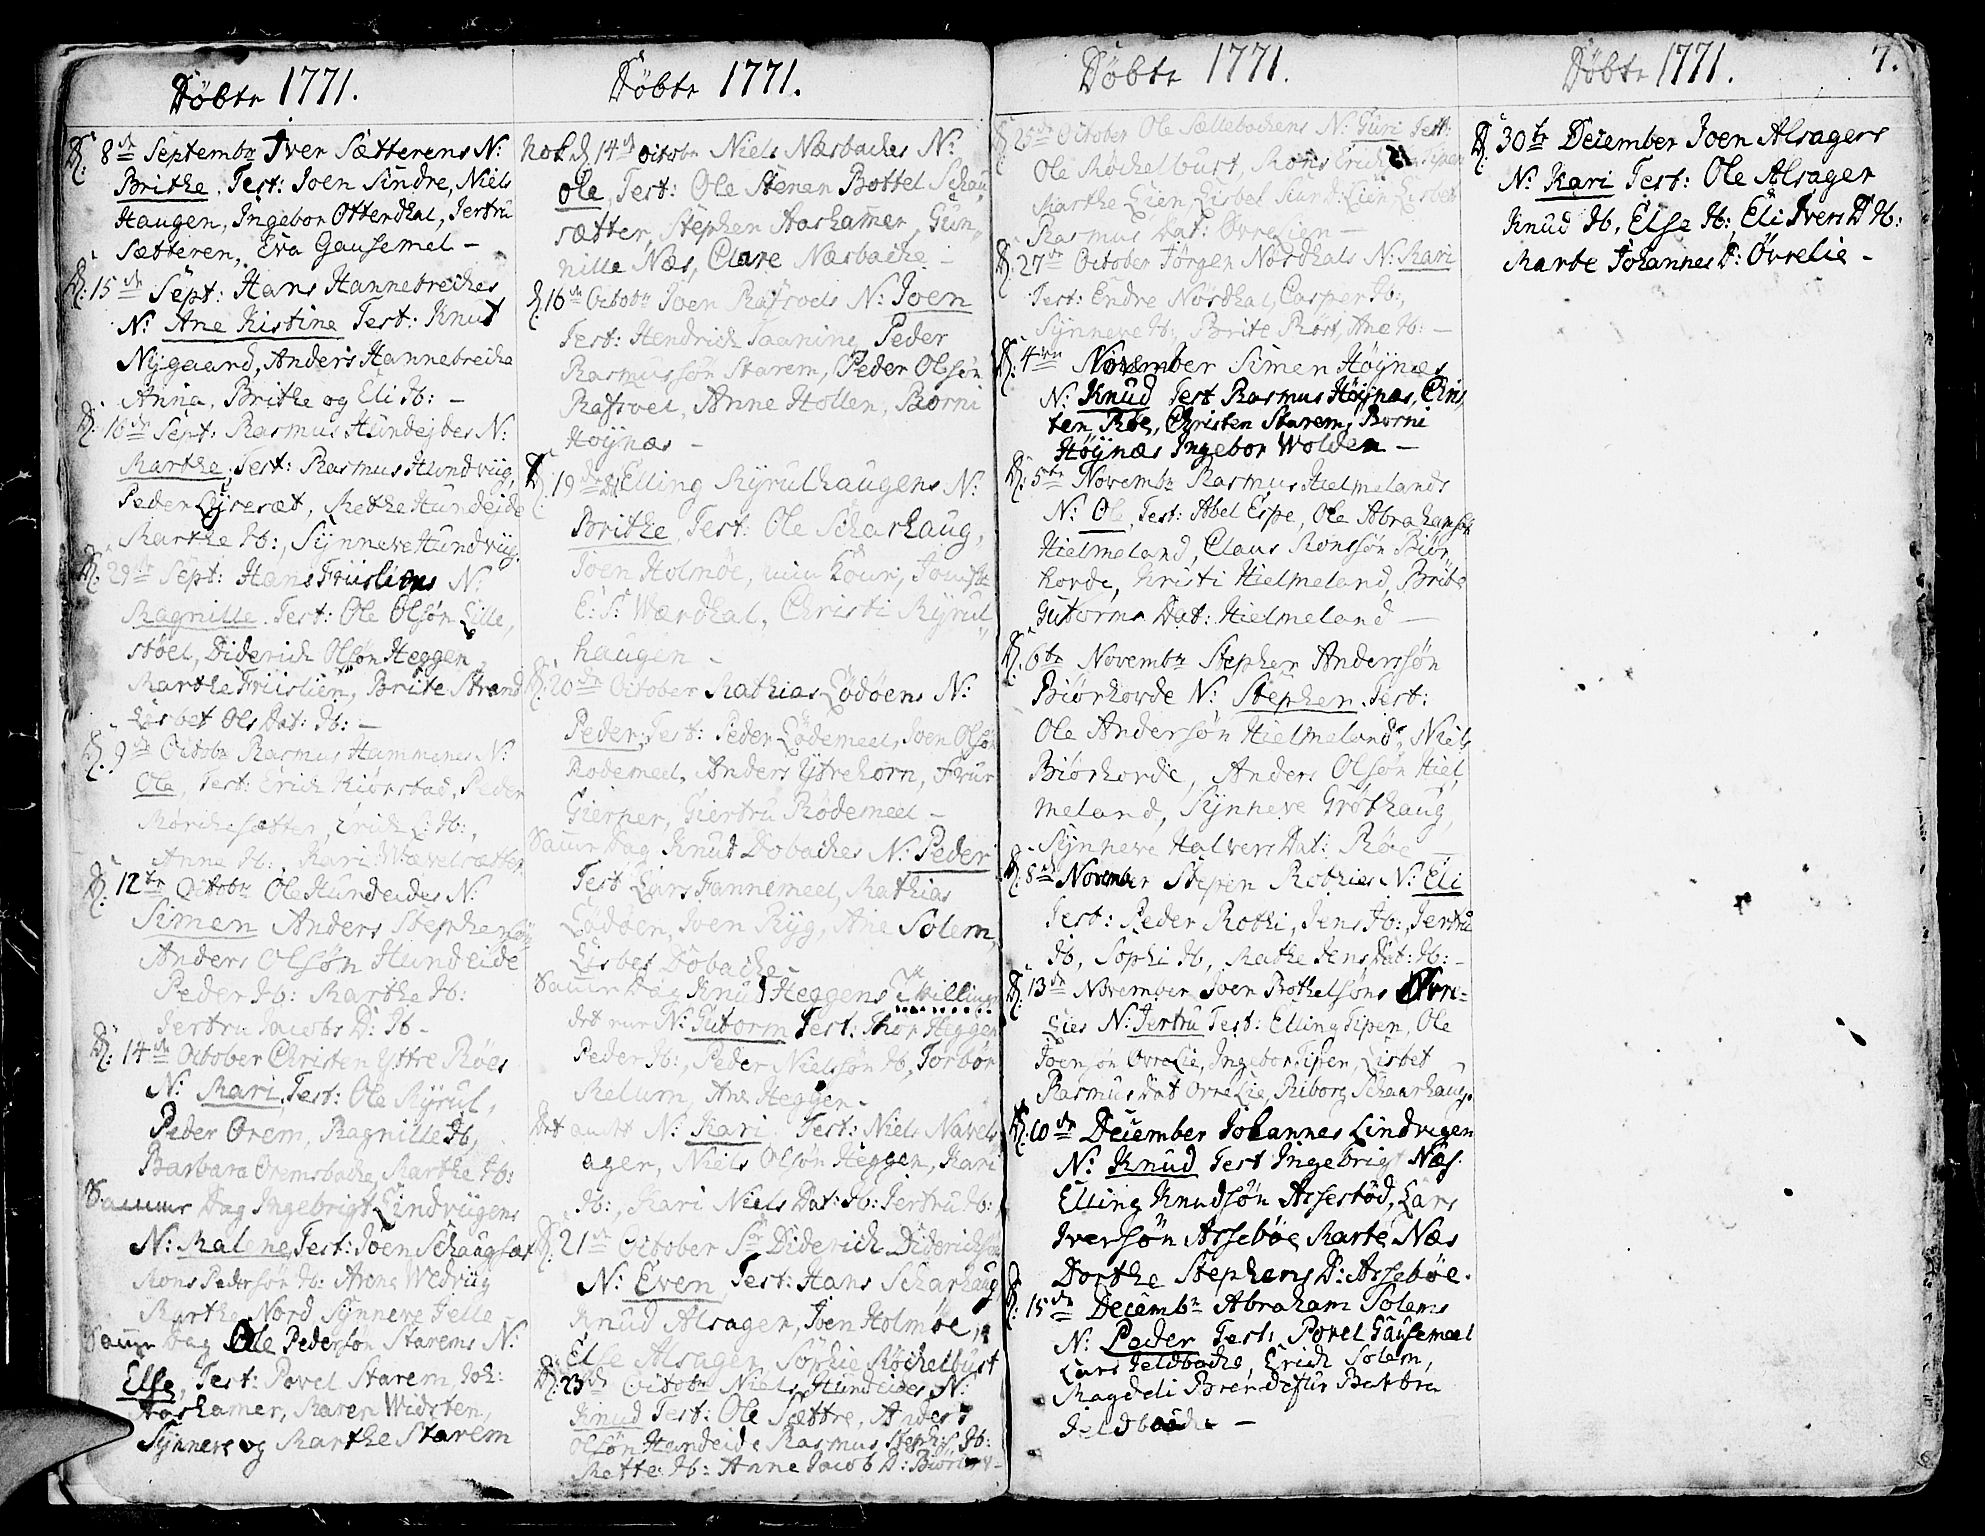 Döbte 1771.
D: 8de Septembr Iver Sætterens N:
Brithe. Test: Joen Sindre, Niels
Haugen, Ingebor Otterdhal, Jertru
Sætteren, Eva Gausemel –
D: 15de Sept: Hans Hannebreches
N: Ane Kistine Test: Knut
Nygaard, Anders Hannebreche
Anna, Brithe og Eli Ib: –
D: 16de Sept: Rasmus Hundejdes N:
Marthe, Test: Rasmus Hundvüg,
Peder Lyresæt, Methe Hundeide
Marthe Ib:, Synneve Hundvüg.
D: 29de Sept: Hans Friisliens N:
Magnille. Test: Ole Olsön Lille,
stöel, Diderich Olsön Heggen
Marthe Friislien, Brite Strand
Lisbet Ols Dat: Ib: –
D: 9de Octobr Rasmus Hummenes N:
Ole, Test: Erich Kiörstad, Peder
Mörchesætter, Erich Ib:,
Anne Ib:, Kari Wævelsætter
D: 12te Octobr Ole Hundeides N:
Simen Anders Stephensön
Anders Olsön Hundeide
Peder Ib: Marthe Ib:
Jertru Jacobs D: Ib –
D: 14de October Christen Yttre Röes
N: Mari, Test: Ole Myrul,
Peder Orem, Ragnille Ib,
Barbara Oremsbache, Marthe Ib:
Samme Dag Ingebrigt Lindvügens
N: Malene, Test: Joen Schaugsæt
Mons Pedersön Ib: Anne Wedvüg
Marthe Nord Synneve Jelle
Samme Dag Ole Pedersön Starems N:
Else, Test: Povel Starem, Joh:
Aashamer, Maren Widsten,
Synneve og Marthe Starem
Döbte 1771.
Nok d 14de Octobr Niels Næsbaches N:
Ole, Test: Ole Stenen Bottel Schau,
sætter, Stephen Aashamer, Gun,
nille Næs, Clare Næsbache –
D: 16de Octobr Joen Rafsvels N: Joen
Test: Hendrich Saaning Peder
Rasmussön Starem, Peder Olsön
Rafsvel, Anne Hollen, Borni
Höynæs –
D: 19de Elling Myrulhaugens N:
Brithe, Test: Ole Scharhaug,
Joen Holmöe, min Kone, Jomfr
E: S: Wærdhal, Christi Myrul,
haugen –
D: 20de October Mathias Lödöens N:
Peder, Test: Peder Lödemeel, Joen Olsön
Rödemeel, Anders Ytrehorn, Frue
Giertrü Rödemeel –
Samme Dag Knud Dobaches N: Peder
Test Lars Fannemeel, Mathias
Lödöen, Joen Ryg, Ane Solem,
Lisbet Dobache
Samme Dag Knud Heggens Tvillinger
det ene N: Gutorm Test: Thor Heggen
Peder Ib:, Peder Nielssön Ib, Torbör
Melum, Ane Heggen –
Det andet N: Kari, Test: Niels Navels
ager, Niels Olsön Heggen, Kari
Ib:, Kari Niels Dat: Ib: Jertru Ib:
D: 21de October Sr Diderich Diderichsön
N: Even, Test: Hans Scharhaug
Knud Alsager, Joen Holmöe,
Else Alsager Sophie Möchelbust
D: 23de Octobr Niels Hundeides N:
Knud Test: Ole Sættre, Anders
Olsön Hundeide Rasmus Steph:S. Ib:
Mette Ib: Anne Jacob D:
Döbte 1771.
D: 25de October Ole Sællebachens N: Guri Test:
Ole Möchelbust, Mons Erichs Tipen
Marthe Lien Lisbet Lien Lisbet
Rasmus Dat: Övrelien –
D: 27de October Jörgen Nordhals N: Mari
Test: Endre Nordhal, Casper Ib:,
Synneve Ib:, Brite Röst, Ane Ib: –
D: 4de November Simen Höynæs
N: Knud Test Rasmus Höynæs, Chris,
ten Röe, Christen Starem, Borni
Höynæs Ingebor Wolden –
D: 5te Novembr Rasmus Hielmelands
N: Ole, Test: Abel Espe, Ole Abrahamsön
Hielmeland, Claus Monssön Biör,
horde, Kristi Hielmeland, Brite
Gutorms Dat: Hielmeland –
D: 6te Novembr Stephen Anderssön
Biörhorde N: Stephen, Test:
Ole Andersön Hielmeland, Niels
Biörhorde, Anders Olsön Hiel,
meland, Synneve Gröthaug,
Synneve Halvers Dat: Röe
D: 8de November Stepen Rothies N: Eli
Test: Peder Rothi, Jens Ib:, Jertru
Ib, Sophi Ib, Mathe Jens Dat: Ib: –
D: 13de November Joen Bothelsöns Övre=
Lies N: Jertru Test: Elling Tipen, Ole
Joensön Övrelie, Ingebor Tipen, Lisbet
Rasmus Dat Övrelie, Riborg Schaarhaug.
D: 10de December Johannes Lindvigen
N: Knud Test Ingebrigt Næs.
Elling Knudsön Assestöd, Lars
Iversön Asseböe, Marte Næs
Dorthe Stephens D: Asseböe.
D: 15de Decembr Abraham Solems
N: Peder Test: Povel Gausemeel
Lars Jeldbache, Erich Solem,
Magdeli Barbra
Jeldbache –
Döbte 1771.
7.
D: 30te December Joen Alsagers
N: Kari Test: Ole Alsager
Knud Ib, Else Ib:, Eli Ivers D: Ib:
Marte Johannes D: Övrelie –